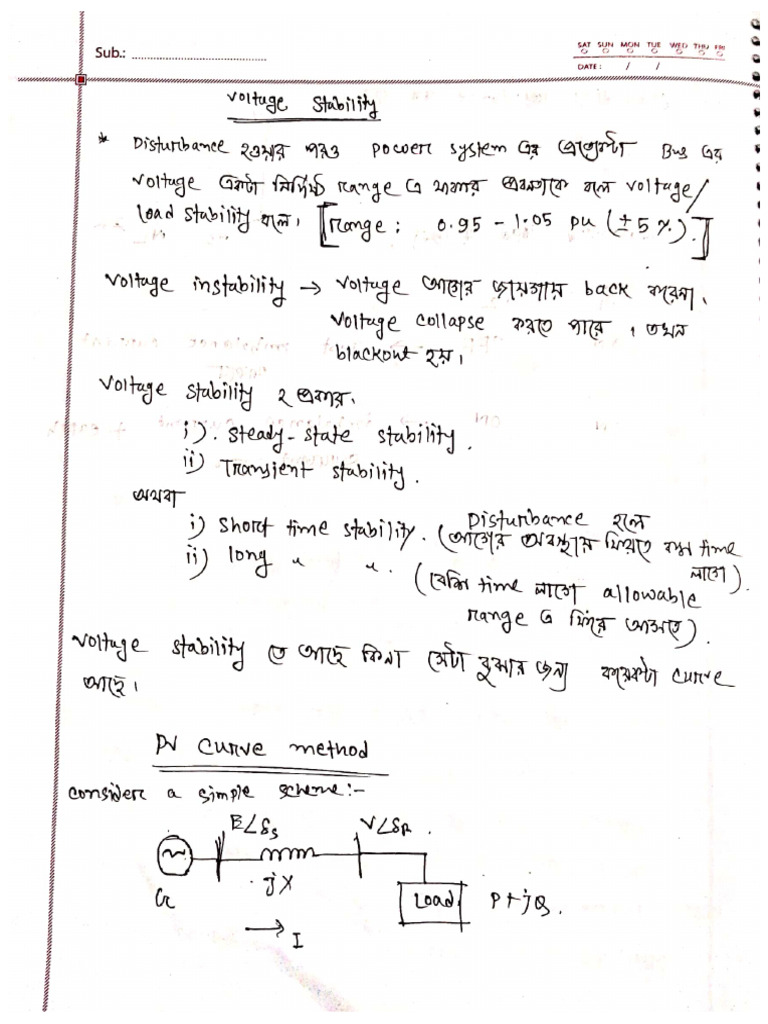 Sub.: ........................................
SAT SUN MON TUE WED THU FRI
DATE : / /
Voltage Stability
* Disturbance হওয়ার পরও power system এর প্রত্যেকটা Bus এর
voltage একটা নির্দিষ্ট range এ থাকার প্রবণতাকে বলে voltage/
load stability বলে। [range: 0.95 - 1.05 pu (±5%).]
Voltage instability → Voltage আগের জায়গায় back করেনা,
Voltage collapse করতে পারে, তখন
blackout হয়।
Voltage stability ২ প্রকার,
i). Steady-state stability.
ii) Transient stability.
অথবা
i) Short time stability. (Disturbance হলে আগের অবস্থায় ফিরতে কম time লাগে).
ii) long " ". (বেশি time লাগে allowable
range এ ফিরে আসতে)
Voltage stability তে আছে কিনা সেটা বুঝার জন্য কয়েকটা curve
আছে।
PV curve method
consider a simple scheme:-
E∠δs V∠δR.
jX
G Load P+jQ.
→ I